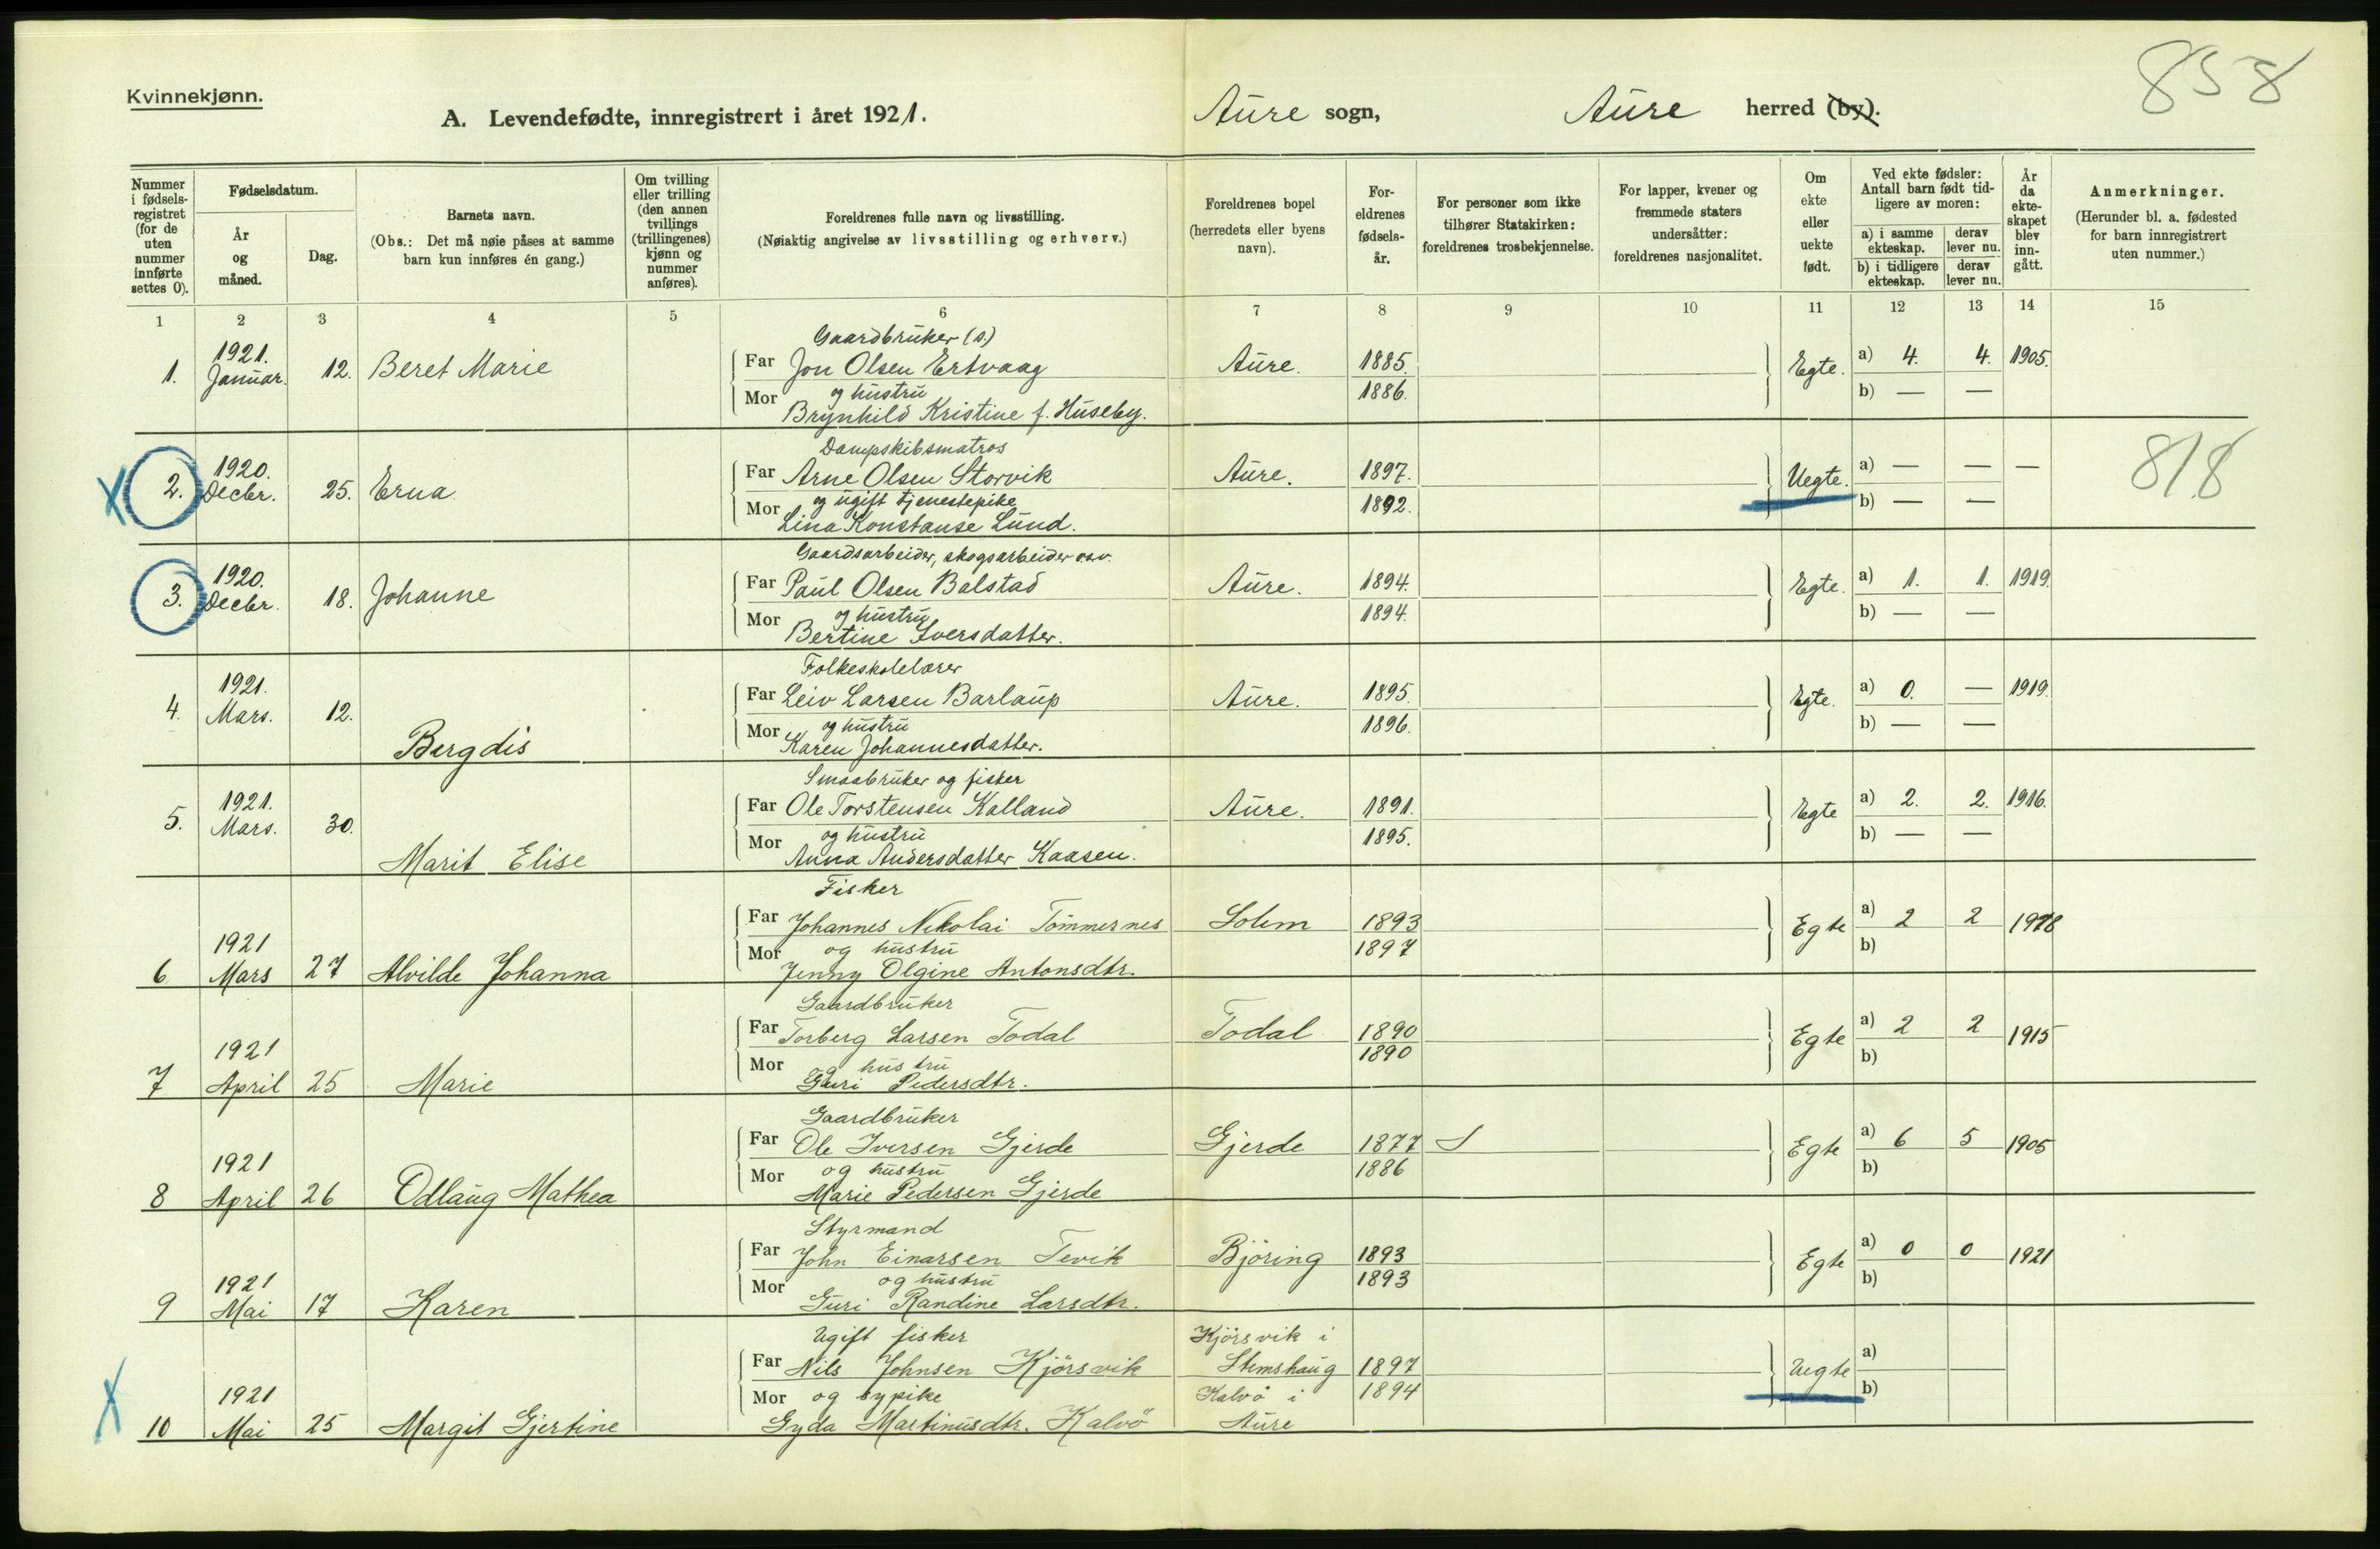 858
Kvinnekjønn.
A. Levendefødte, innregistrert i året 1921.
Aure sogn, Aure herred (by).
Nummer i fødsels-registret (for de uten nummer innførte settes 0).
Fødselsdatum.
År og måned.
Dag.
Barnets navn.
(Obs.: Det må nøie påses at samme barn kun innføres én gang.)
Om tvilling eller trilling (den annen tvillings (trillingenes) kjønn og nummer anføres).
Foreldrenes fulle navn og livsstilling.
(Nøiaktig angivelse av livsstilling og erhverv.)
Foreldrenes bopel (herredets eller byens navn).
For-eldrenes fødsels-år.
For personer som ikke tilhører Statskirken: foreldrenes trosbekjennelse.
For lapper, kvener og fremmede staters undersåtter: foreldrenes nasjonalitet.
Om ekte eller uekte født.
Ved ekte fødsler: Antall barn født tid-ligere av moren:
a) i samme ekteskap. derav lever nu.
b) i tidligere ekteskap. derav lever nu.
År da ekte-skapet blev inn-gått.
Anmerkninger.
(Herunder bl. a. fødested for barn innregistrert uten nummer.)
1 2 3 4 5 6 7 8 9 10 11 12 13 14 15
Gaardbruker (s.)
1. 1921. Januar. 12. Beret Marie Far Jon Olsen Ertvaag Aure. 1885. Egte. a) 4. 4. 1905.
Mor og hustru 1886. b) — —
Brynhild Kristine f. Huseby.
Dampskibsmatros
X 2. 1920. Decbr. 25. Erna Far Arne Olsen Storvik Aure. 1897. Uegte. a) — — — 818
Mor og ugift tjenestepike 1892. b) — —
Lina Konstanse Lund.
Gaardsarbeider, skogsarbeider o.s.v.
3. 1920. Decbr. 18. Johanne Far Paul Olsen Balstad Aure. 1894. Egte. a) 1. 1. 1919.
Mor og hustru 1894. b) — —
Bertine Iversdatter.
Folkeskolelærer
4. 1921. Mars. 12. Bergdis Far Leiv Larsen Barlaup Aure. 1895. Egte. a) 0. — 1919.
Mor og hustru 1896. b) — —
Karen Johannesdatter.
Smaabruker og fisker
5. 1921. Mars. 30. Marit Elise Far Ole Torstensen Kalland Aure. 1891. Egte a) 2. 2. 1916.
Mor og hustru 1895. b) — —
Anna Andersdatter Kaasen.
Fisker
6 1921 Mars 27 Alvilde Johanna Far Johannes Nikolai Tömmernes Solem 1893 Egte a) 2 2 1918
Mor og hustru 1897 b)
Jenny Olgine Antonsdtr.
Gaardbruker
7 1921 April 25 Marie Far Torberg Larsen Todal Todal 1890 Egte a) 2 2 1915
Mor og hustru 1890 b)
Guri Pedersdtr.
Gaardbruker
8 1921 April 26 Odlaug Mathea Far Ole Iversen Gjerde Gjerde 1877 Egte a) 6 5 1905
Mor og hustru 1886 b)
Marie Pedersen Gjerde
Styrmand
9 1921 Mai 17 Karen Far John Einarsen Tevik Björing 1893 Egte a) 0 0 1921
Mor og hustru 1893 b)
Guri Randine Larsdtr.
Ugift fisker Kjörsvik i
X 10 1921 Mai 25 Margit Gjertine Far Nils Johnsen Kjörsvik Stemshaug 1897 Uegte a)
Mor og bypike Kalvö i 1894 b)
Gyda Martinusdtr. Kalvö Aure